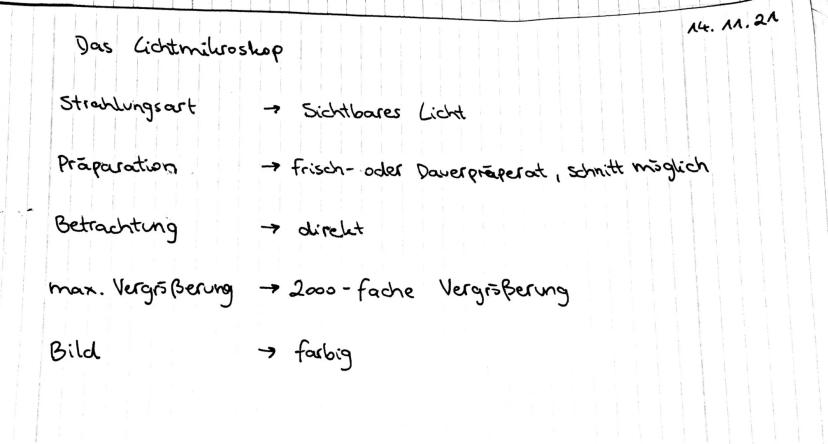 14.11.21
Das Lichtmikroskop
Strahlungsart → Sichtbares Licht
Präparation → frisch- oder Dauerpräperat, schnitt möglich
Betrachtung → direkt
max. Vergrößerung → 2000-fache Vergrößerung
Bild → farbig